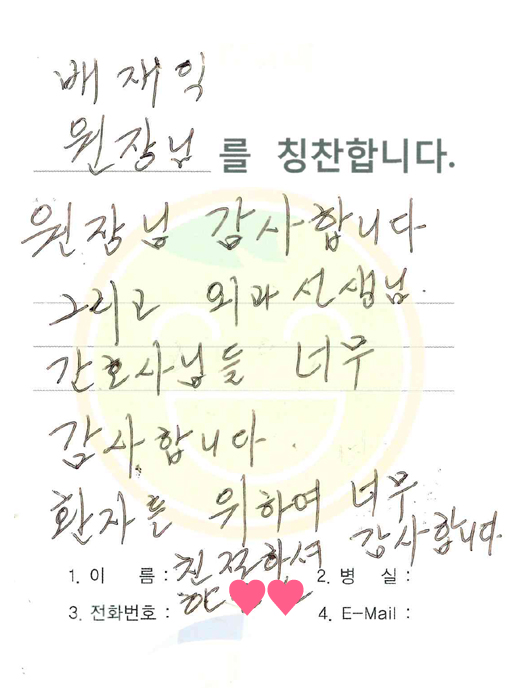 배재익
원장님 를 칭찬합니다.
원장님 감사합니다
그리고 외과 선생님.
간호사님들 너무
감사합니다.
환자를 위하여 너무
친절하셔 감사합니다.
1. 이 름 :
2. 병 실 :
3. 전화번호 :
4. E-Mail :